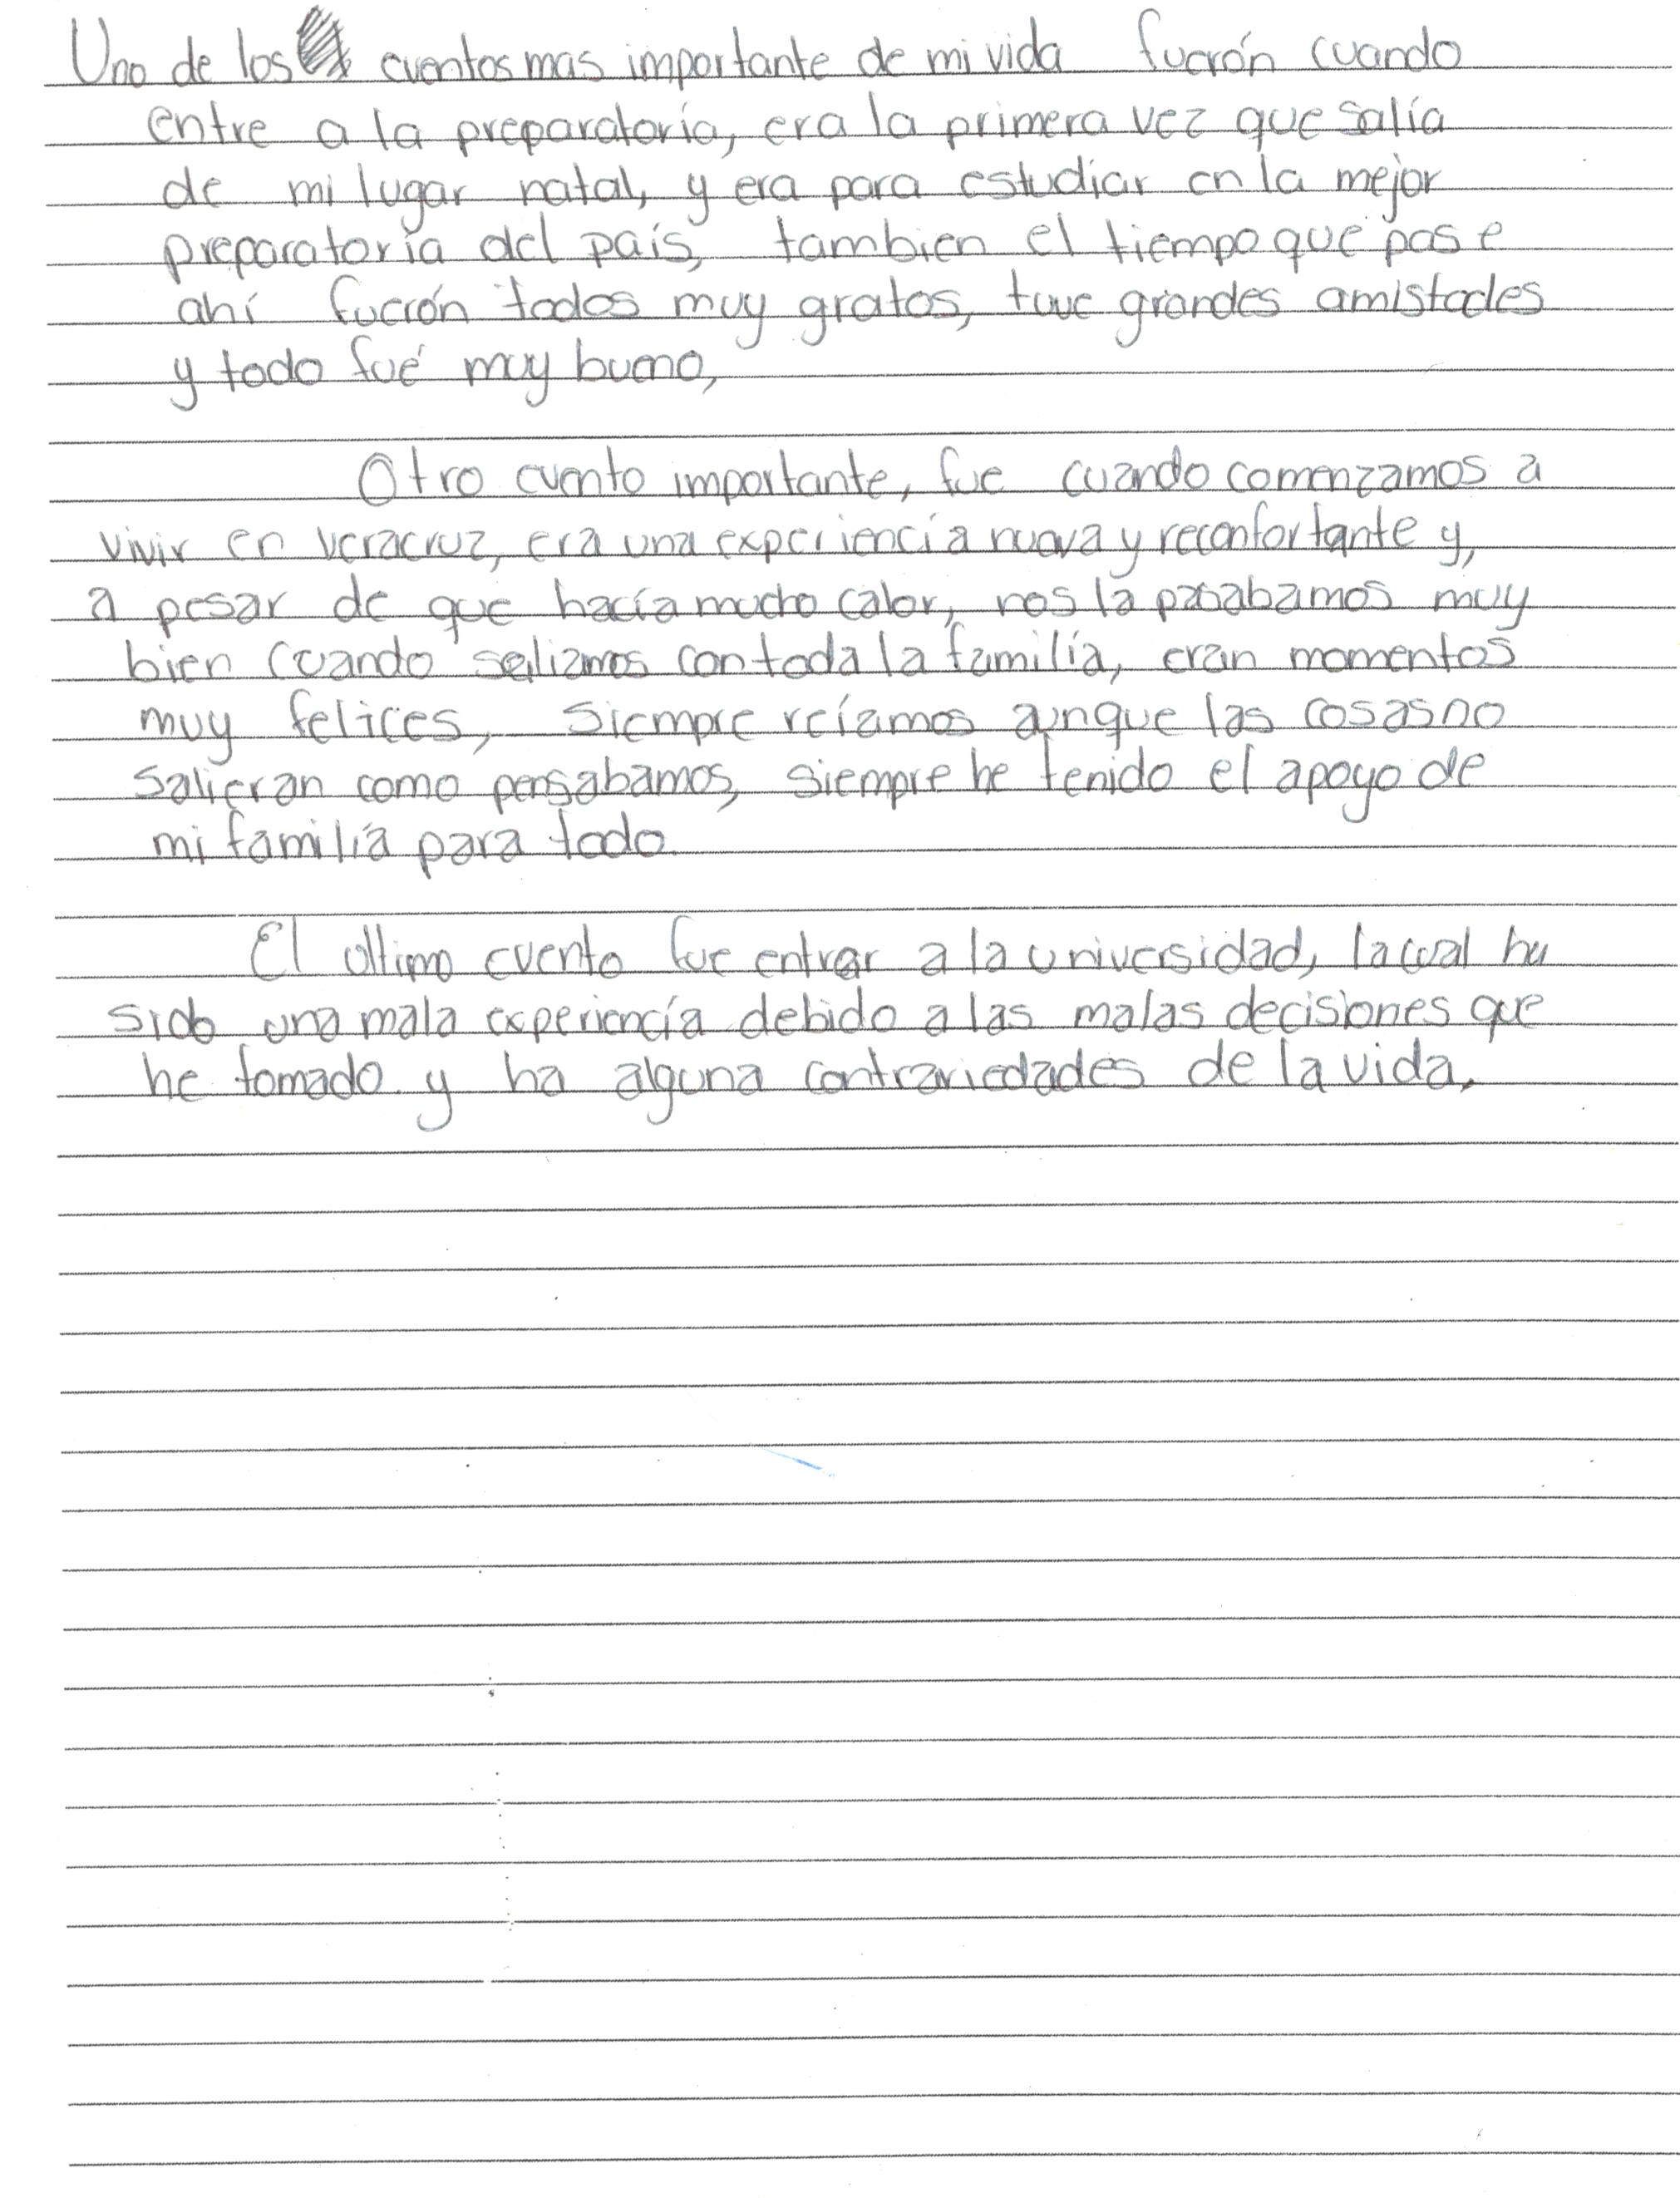 Uno de los eventos mas importante de mi vida fuerón cuando
entre a la preparatoría, era la primera vez que salía
de mi lugar natal, y era para estudiar en la mejor
preparatoría del país, tambien el tiempo que pase
ahí fuerón todos muy gratos, tuve grandes amistades
y todo fué muy bueno,
Otro evento importante, fue cuando comenzamos a
vivir en Veracruz, era una experiencía nueva y reconfortante y,
a pesar de que hacía mucho calor, nos la pasabamos muy
bien cuando saliamos con toda la familía, eran momentos
muy felices, siempre reíamos aunque las cosas no
salieran como pensabamos, siempre he tenido el apoyo de
mi familía para todo.
El ultimo evento fue entrar a la universidad, la cual ha
sido una mala experiencía debido a las malas decisiones que
he tomado y ha alguna contrariedades de la vida.